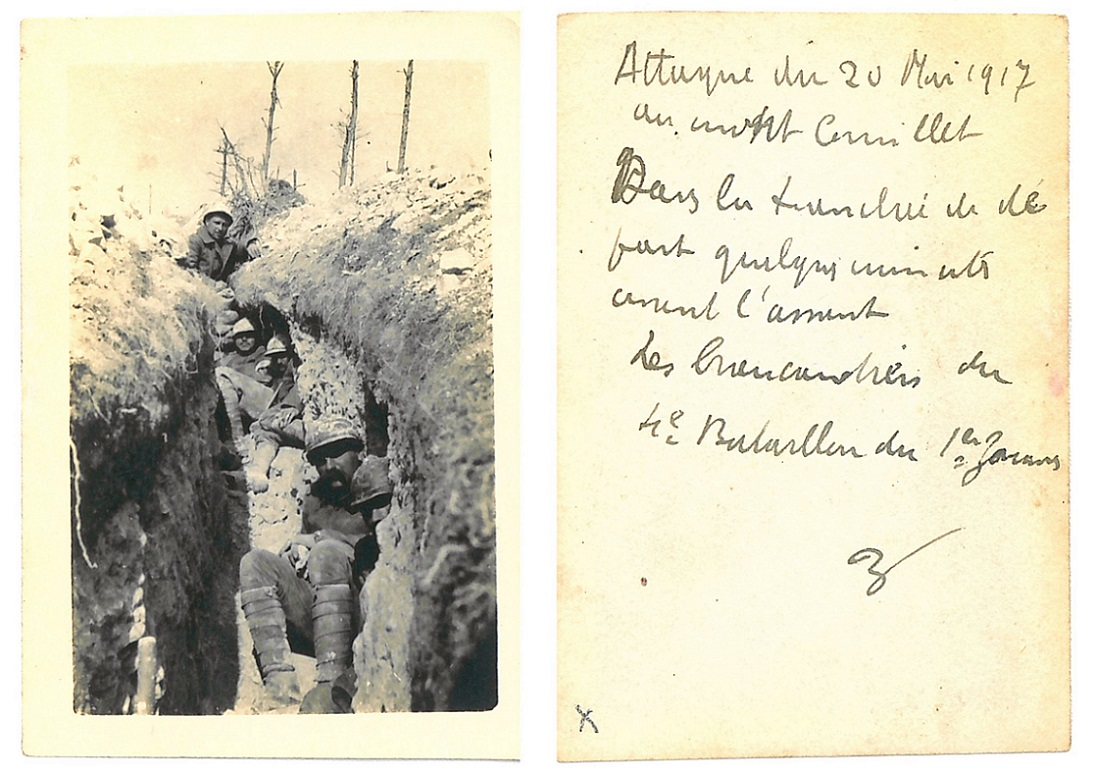 Attaque du 20 Mai 1917
au mont Cornillet
Dans la tranchée de dé
part quelques minutes
avant l'assaut
Les brancardiers du
4e Bataillon du 1er Zouaves
X